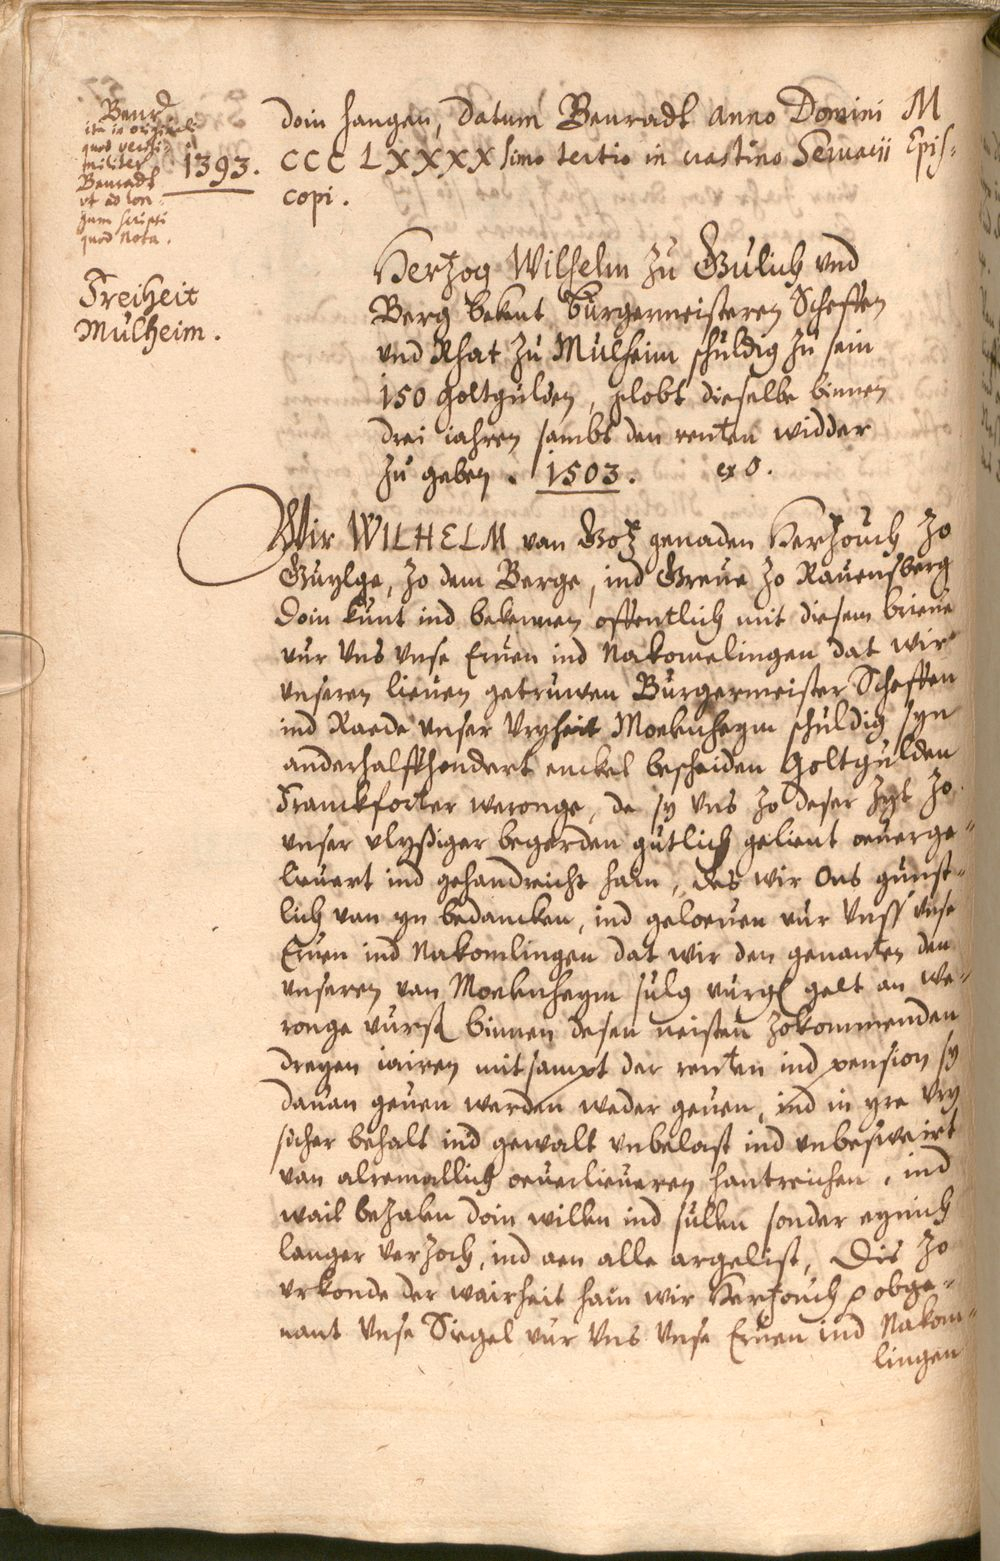 Benrd
ita in originali
quod verisi-
militer
Benradt
vt ad lon-
gum scripsi
quod nota.
1393.
doin hangen, Datum Benradt Anno Domini M
CCC LXXXX simo tertio in crastino Seruacij Epis-
copi.
Freiheit
Mulheim.
Hertzog Wilhelm zu Gulich vnd
Berg bekent burgermeisteren Scheffen
vnd Rhat zu Mulheim schuldig zu sein
150 goltgulden, globt dieselbe binnen
drei iahren sambt den renten widder
zu geben. 1503. ex O.
Wir WILHELM van Gotz genaden Hertzouch zo
Guylge, zo dem Berge, ind Greue zo Rauensberg
Doin kunt ind bekennen offentlich mit diesem brieue
vur Vns Vnse Eruen ind Nakomelingen dat wir
vnseren lieuen getruwen Burgermeister Scheffen
ind Raede vnser Vryheit Moelenheym schuldig syn
anderhalffhondert enckel bescheiden Goltgulden
Franckforter weronge, de sy vns zo deser zyt zo
vnser vlyßiger begerden gutlich gelient oeuerge-
lieuert ind gehandreicht hain, des wir Ons gunst-
lich van yn bedancken, ind geloeuen vur Vnss Vnse
Eruen ind Nakomlingen dat wir den genanten den
vnseren van Moelenheym sulg vurgl gelt an we-
ronge vurß binnen desen neisten zokommenden
dryen iairen mit sampt der renten ind pension sy
dauan geuen werden weder geuen, ind in yre Vry
sicher behalt ind gewalt vnbelast ind vnbesweirt
van alremallich oeuerlieueren hantreichen, ind
wail bezalen doin willen ind sullen sonder eynich
langer verzoch, ind aen alle argelist, Dis zo
vrkonde der wairheit hain wir Hertzouch p obge-
nant Vnse Siegel vur Vns Vnse Eruen ind Nakom-
lingen